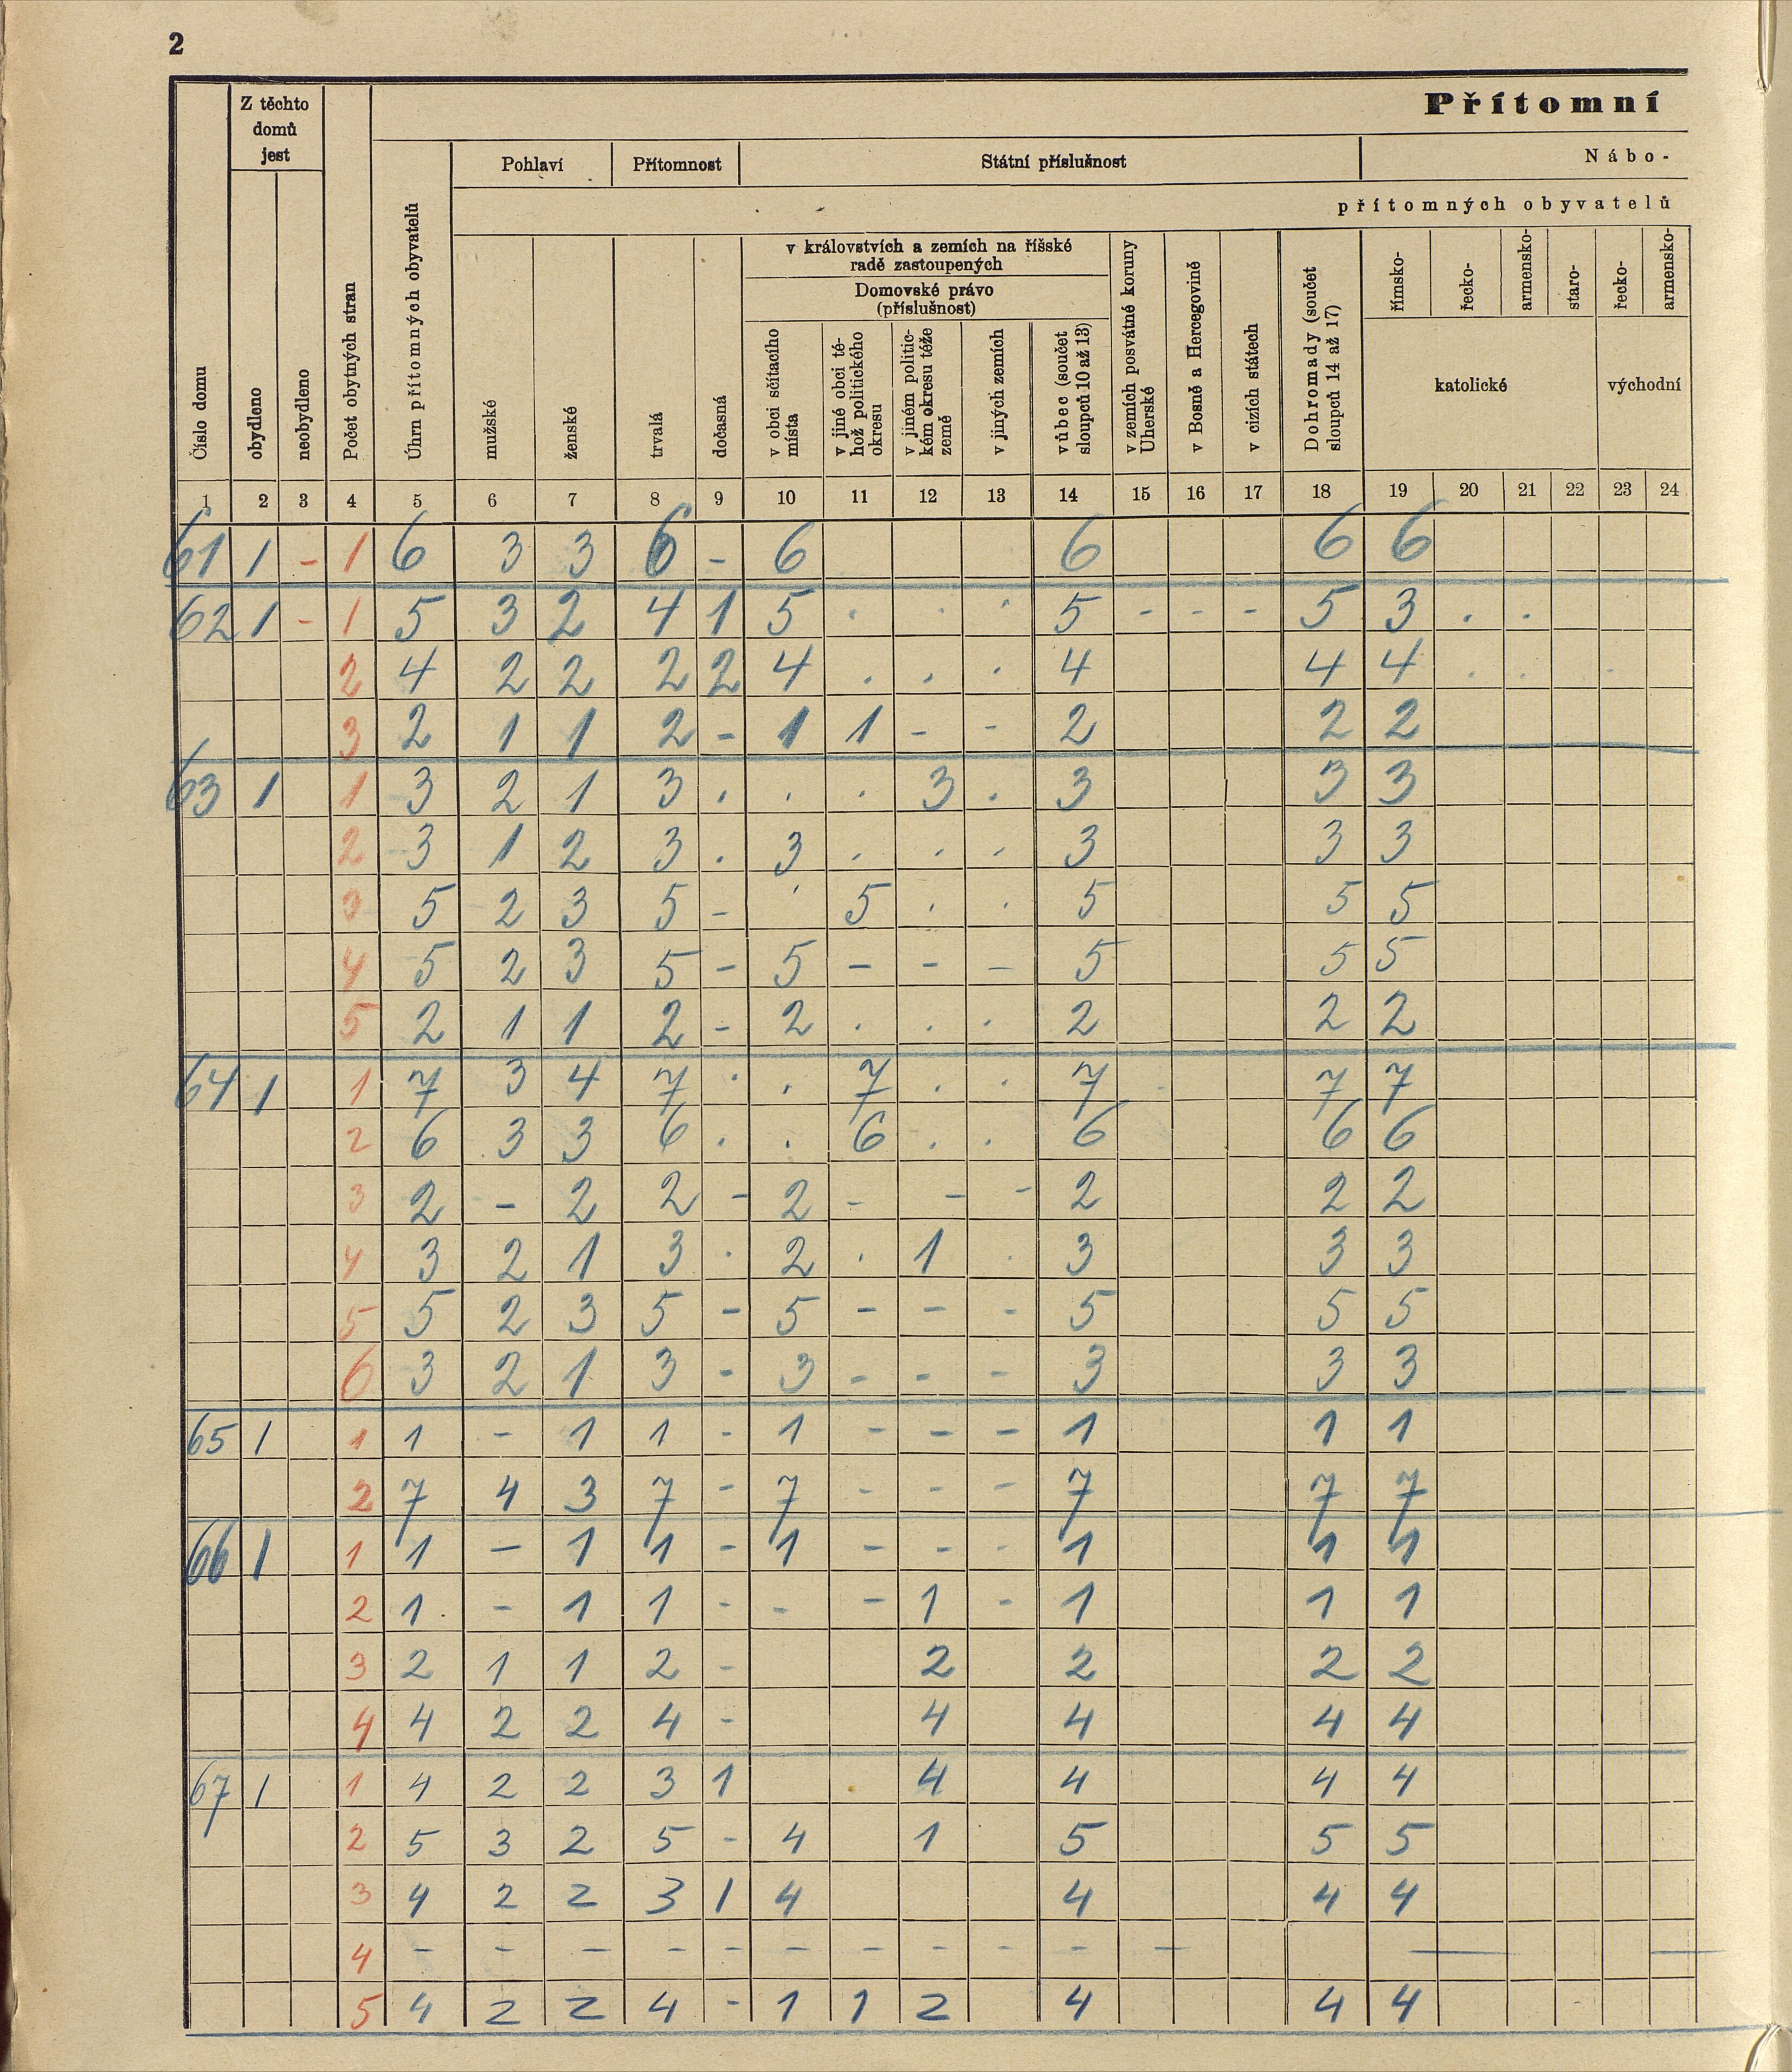 2
Přítomní
Z těchto domů jest
Pohlaví
Přítomnost
Státní příslušnost
Nábo-
přítomných obyvatelů
Číslo domu
obydleno
neobydleno
Počet obytných stran
Úhrn přítomných obyvatelů
mužské
ženské
trvalá
dočasná
v královstvích a zemích na říšské radě zastoupených
Domovské právo (příslušnost)
v obci sčítacího místa
v jiné obci téhož politického okresu
v jiném politickém okresu téže země
v jiných zemích
vůbec (součet sloupců 10 až 13)
v zemích posvátné koruny Uherské
v Bosně a Hercegovině
v cizích státech
Dohromady (součet sloupců 14 až 17)
římsko-
řecko-
armensko-
staro-
řecko-
armensko-
katolické
východní
1 2 3 4 5 6 7 8 9 10 11 12 13 14 15 16 17 18 19 20 21 22 23 24
61 1 - 1 6 3 3 6 - 6 6 6 6
62 1 - 1 5 3 2 4 1 5 . . . 5 - - - 5 3 . .
2 4 2 2 2 2 4 . . . 4 4 4 . . .
3 2 1 1 2 - 1 1 - - 2 2 2
63 1 1 3 2 1 3 . . . 3 . 3 3 3
2 3 1 2 3 . 3 . . . 3 3 3
3 5 2 3 5 - . 5 . . 5 5 5
4 5 2 3 5 - 5 - - - 5 5 5
5 2 1 1 2 - 2 . . . 2 2 2
64 1 1 7 3 4 7 . . 7 . . 7 7 7
2 6 3 3 6 . . 6 . . 6 6 6
3 2 - 2 2 - 2 - - - 2 2 2
4 3 2 1 3 . 2 . 1 . 3 3 3
5 5 2 3 5 - 5 - - - 5 5 5
6 3 2 1 3 - 3 - - - 3 3 3
65 1 1 1 - 1 1 - 1 - - - 1 1 1
2 7 4 3 7 - 7 - - - 7 7 7
66 1 1 1 - 1 1 - 1 - - - 1 1 1
2 1 - 1 1 - - - 1 - 1 1 1
3 2 1 1 2 - 2 2 2 2
4 4 2 2 4 - 4 4 4 4
67 1 1 4 2 2 3 1 4 4 4 4
2 5 3 2 5 - 4 1 5 5 5
3 4 2 2 3 1 4 4 4 4
4 - - - - - - - - - - - - -
5 4 2 2 4 - 1 1 2 4 4 4